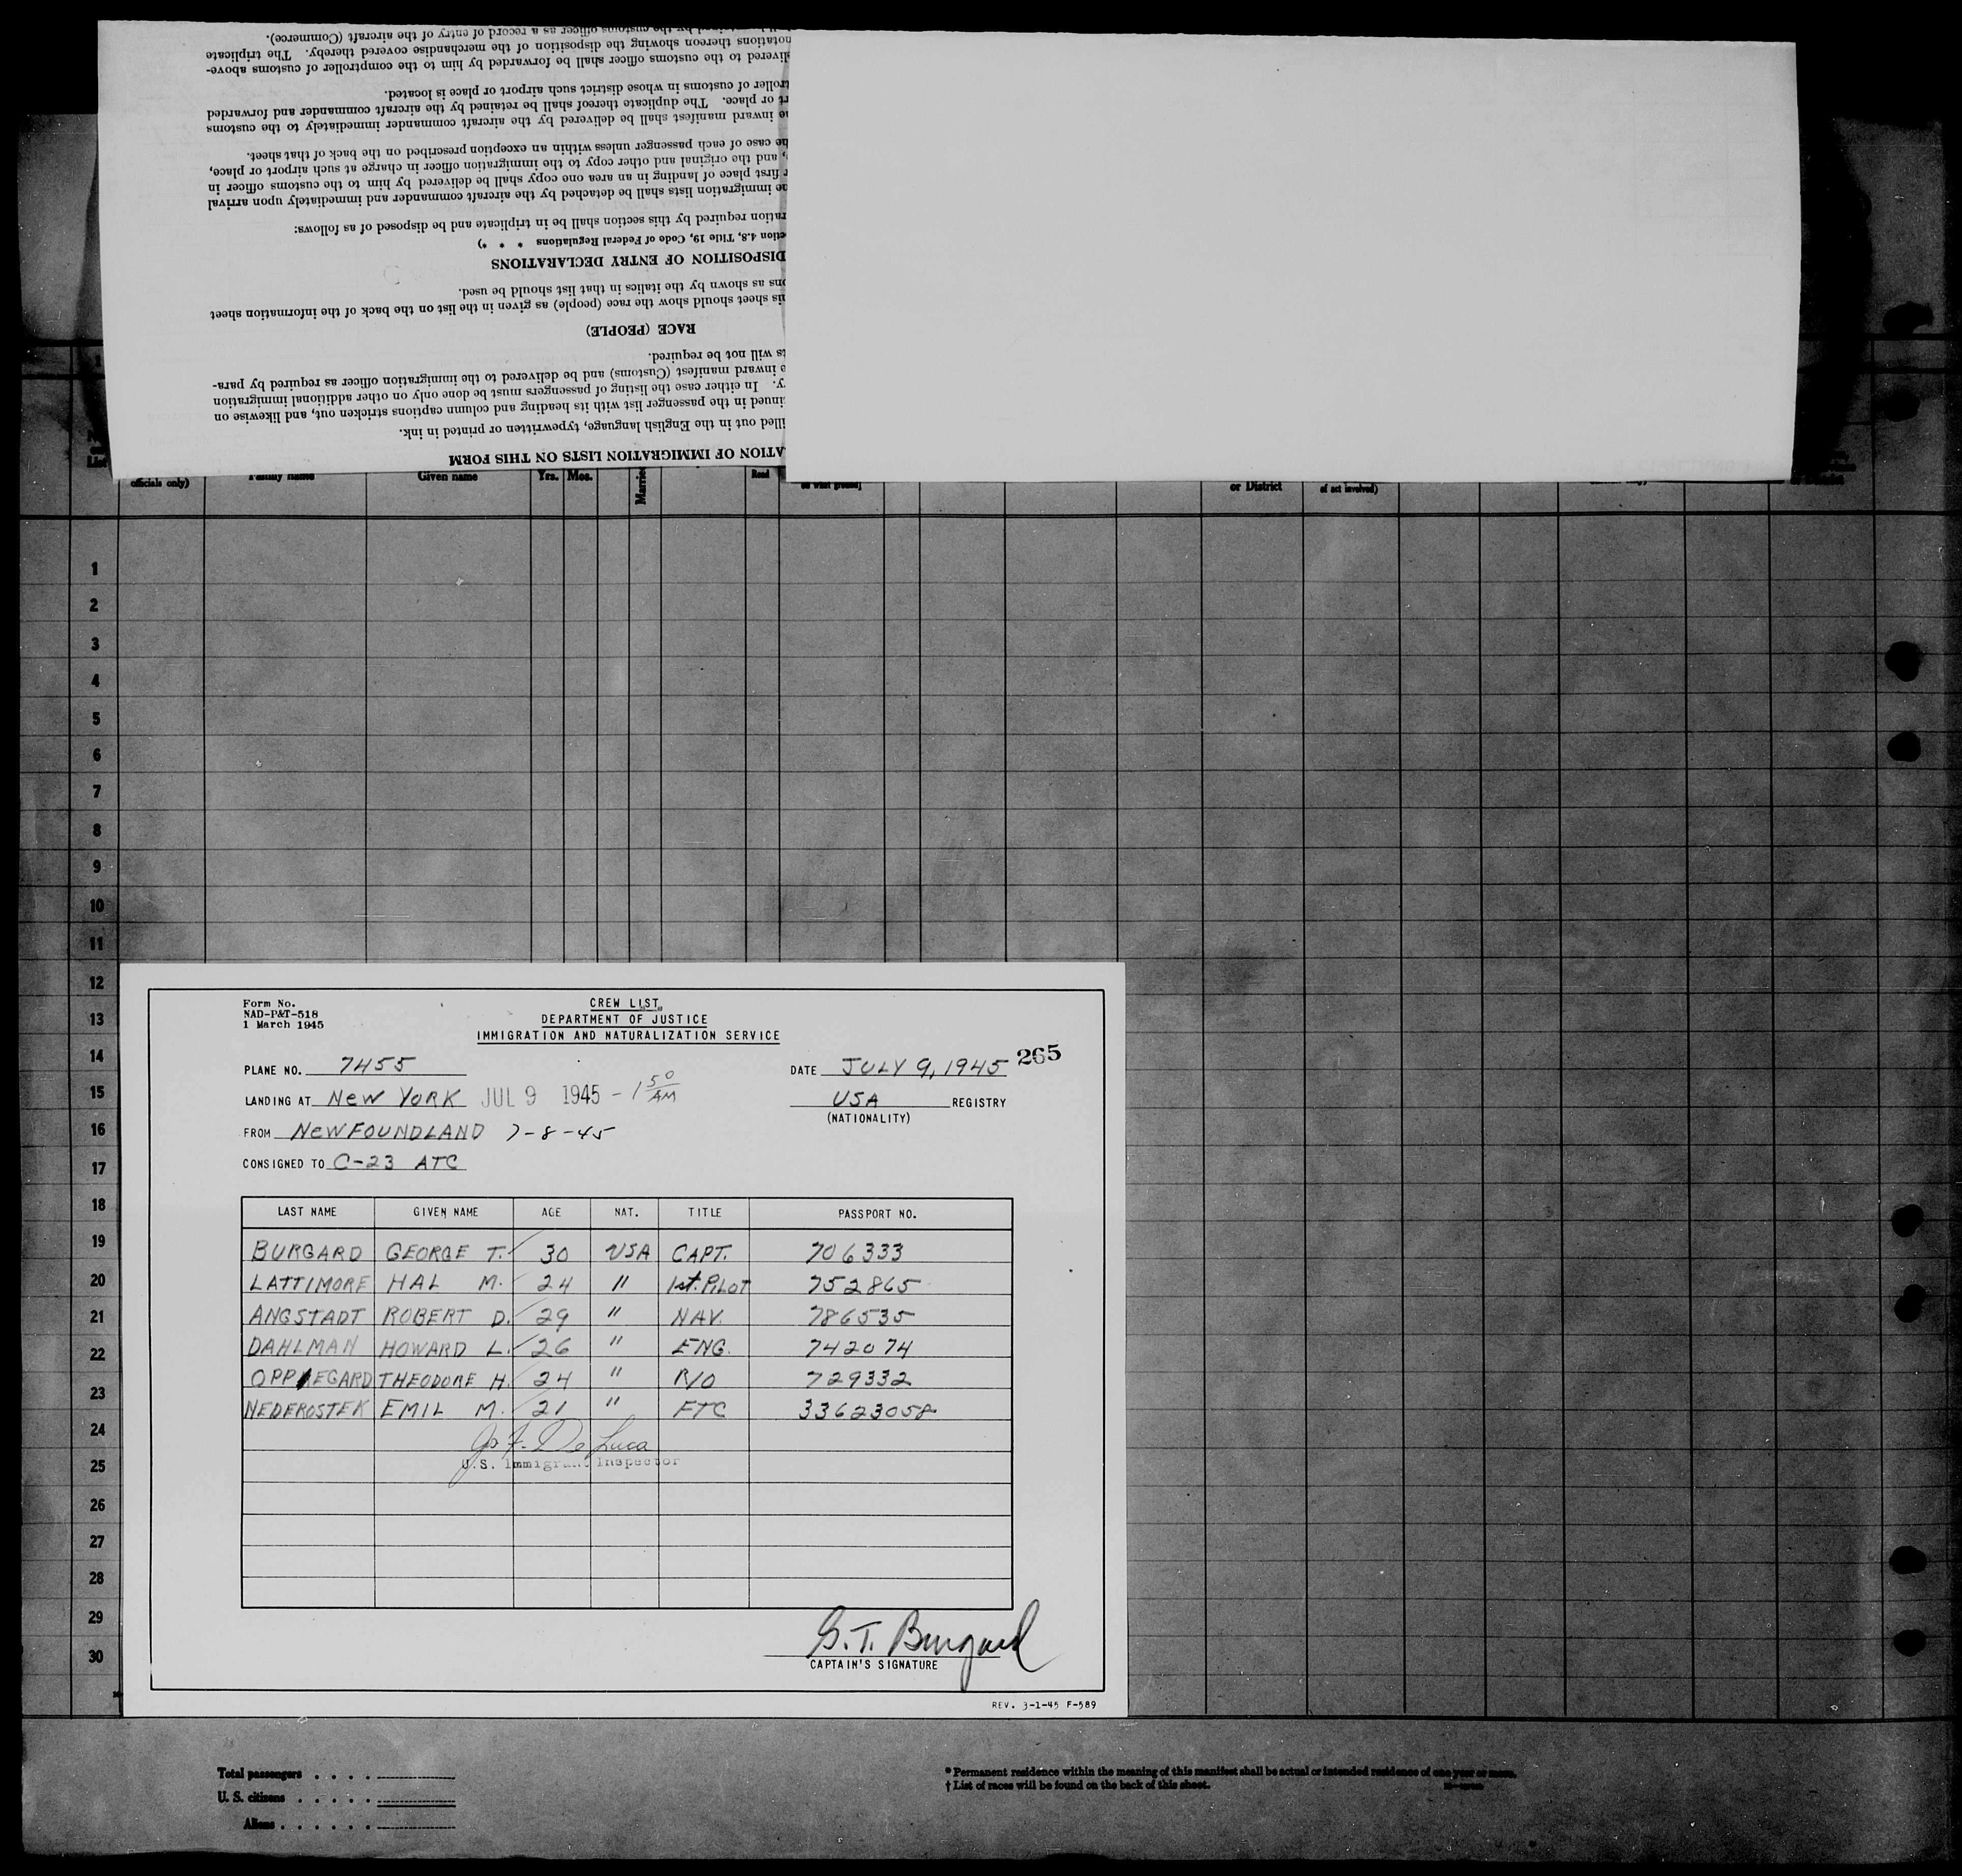 ll be retained by the customs officer as a record of entry of the aircraft (Commerce).
notations thereon showing the disposition of the merchandise covered thereby. The triplicate
livered to the customs officer shall be forwarded by him to the comptroller of customs above-
troller of customs in whose district such airport or place is located.
rt or place. The duplicate thereof shall be retained by the aircraft commander and forwarded
he inward manifest shall be delivered by the aircraft commander immediately to the customs
he case of each passenger unless within an exception prescribed on the back of that sheet.
, and the original and other copy to the immigration officer in charge at such airport or place,
r first place of landing in an area one copy shall be delivered by him to the customs officer in
he immigration lists shall be detached by the aircraft commander and immediately upon arrival
ration required by this section shall be in triplicate and be disposed of as follows:
ction 4.8, Title 19, Code of Federal Regulations * * *)
DISPOSITION OF ENTRY DECLARATIONS
ons as shown by the italics in that list should be used.
is sheet should show the race (people) as given in the list on the back of the information sheet
RACE (PEOPLE)
ts will not be required.
e inward manifest (Customs) and be delivered to the immigration officer as required by para-
y. In either case the listing of passengers must be done only on other additional immigration
inued in the passenger list with its heading and column captions stricken out, and likewise on
illed out in the English language, typewritten or printed in ink.
ATION OF IMMIGRATION LISTS ON THIS FORM
officials only) Family name Given name Yrs. Mos. Married Read or District of act involved)
1
2
3
4
5
6
7
8
9
10
11
12
13
14
15
16
17
18
19
20
21
22
23
24
25
26
27
28
29
30
Form No.
NAD-P&T-518
1 March 1945
CREW LIST
DEPARTMENT OF JUSTICE
IMMIGRATION AND NATURALIZATION SERVICE
265
PLANE NO. 7455 DATE JULY 9, 1945
LANDING AT NEW YORK JUL 9 1945 - 1 50 AM USA REGISTRY
(NATIONALITY)
FROM NEWFOUNDLAND 7-8-45
CONSIGNED TO C-23 ATC
LAST NAME GIVEN NAME AGE NAT. TITLE PASSPORT NO.
BURGARD GEORGE T. 30 USA CAPT. 706333
LATTIMORE HAL M. 24 " 1st. PILOT 752865
ANGSTADT ROBERT D. 29 " NAV. 786535
DAHLMAN HOWARD L. 26 " ENG. 742074
OPPEGARD THEODORE H. 24 " R/O 729332
NEDEROSTEK EMIL M. 21 " FTC 33623058
Jo F. De Luca
U.S. Immigrant Inspector
G.T. Burgard
CAPTAIN'S SIGNATURE
REV. 3-1-45 F-589
Total passengers
U. S. citizens
Aliens
* Permanent residence within the meaning of this manifest shall be actual or intended residence of one year or more.
† List of races will be found on the back of this sheet.